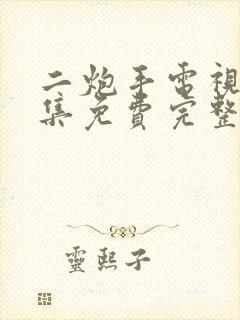 二炮手電視
集免費完整
靈熙子